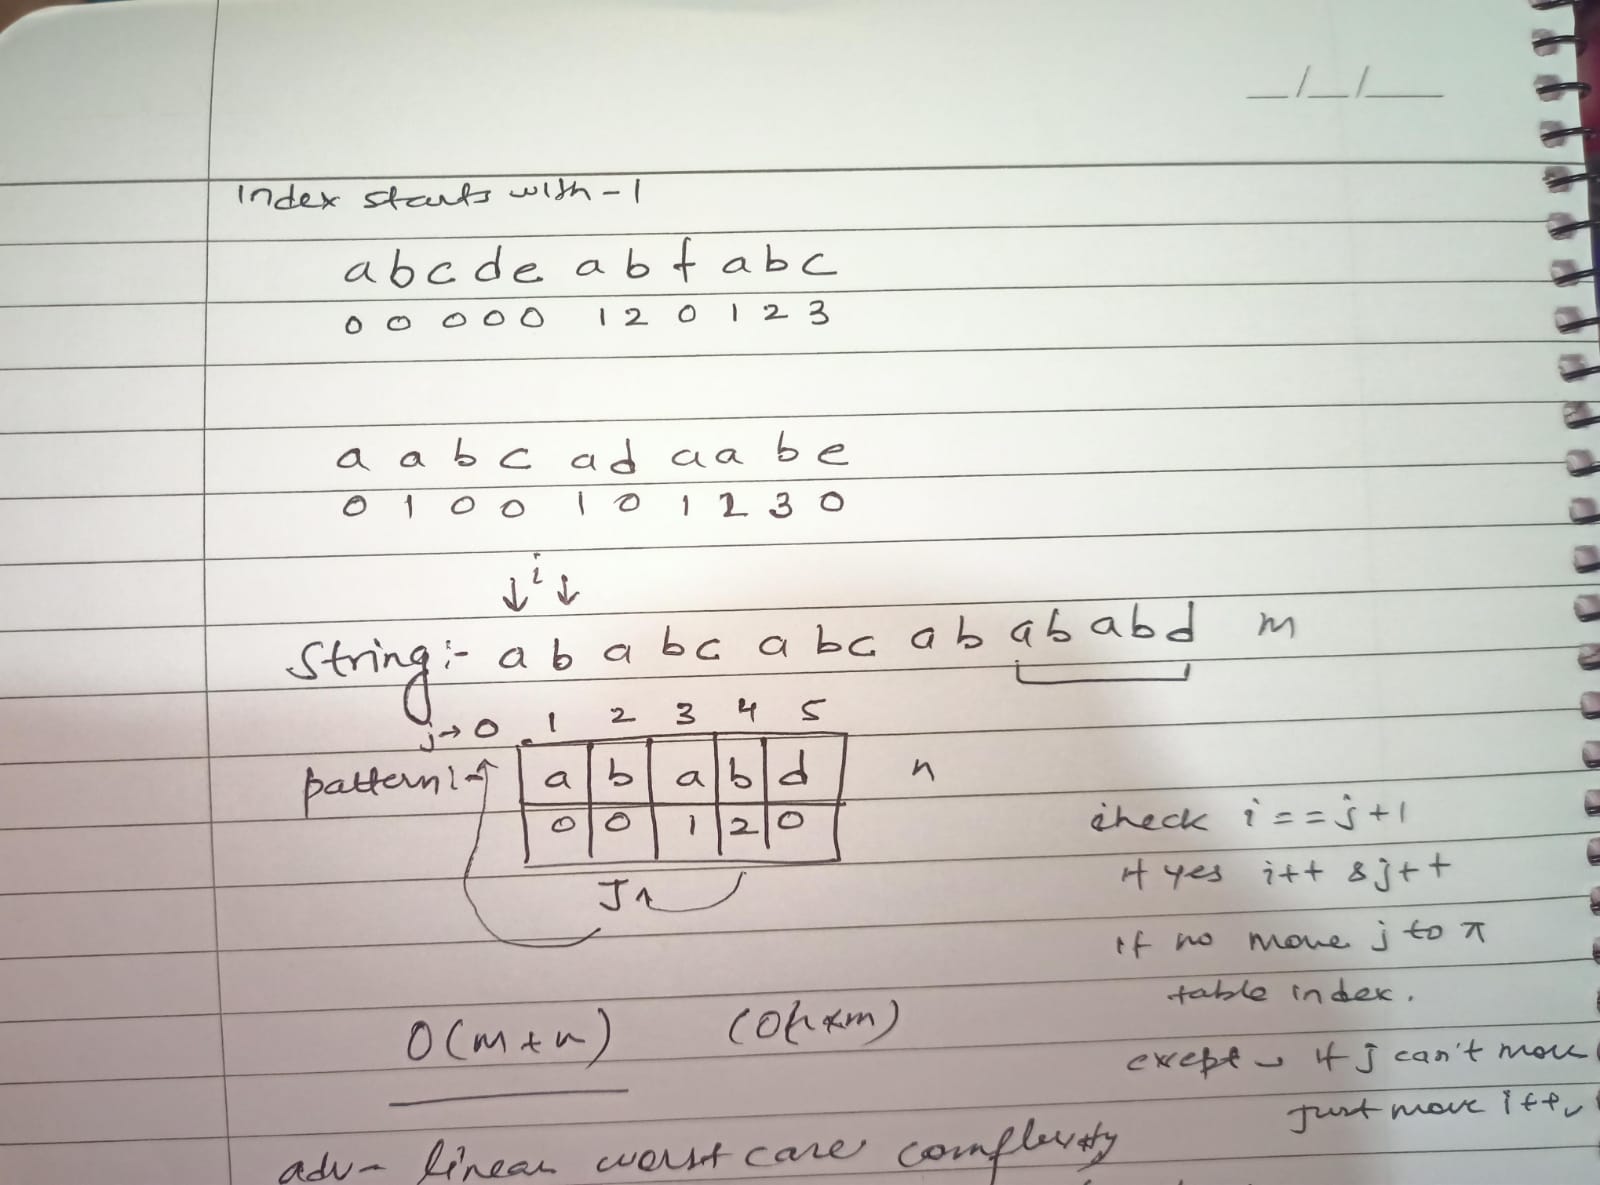 _/_/__
Index starts with - 1
a b c d e a b f a b c
0 0 0 0 0 1 2 0 1 2 3
a a b c a d a a b e
0 1 0 0 1 0 1 2 3 0
↓ i ↓
String :- a b a b c a b c a b a b a b d m
j → 0 1 2 3 4 5
pattern :- a b a b d n
0 0 1 2 0
check i == j+1
if yes i++ & j++
J
if no move j to π
table index.
O(m+n) (O(n×m)
except → if j can't move
just move i++
adv - linear worst case complexity